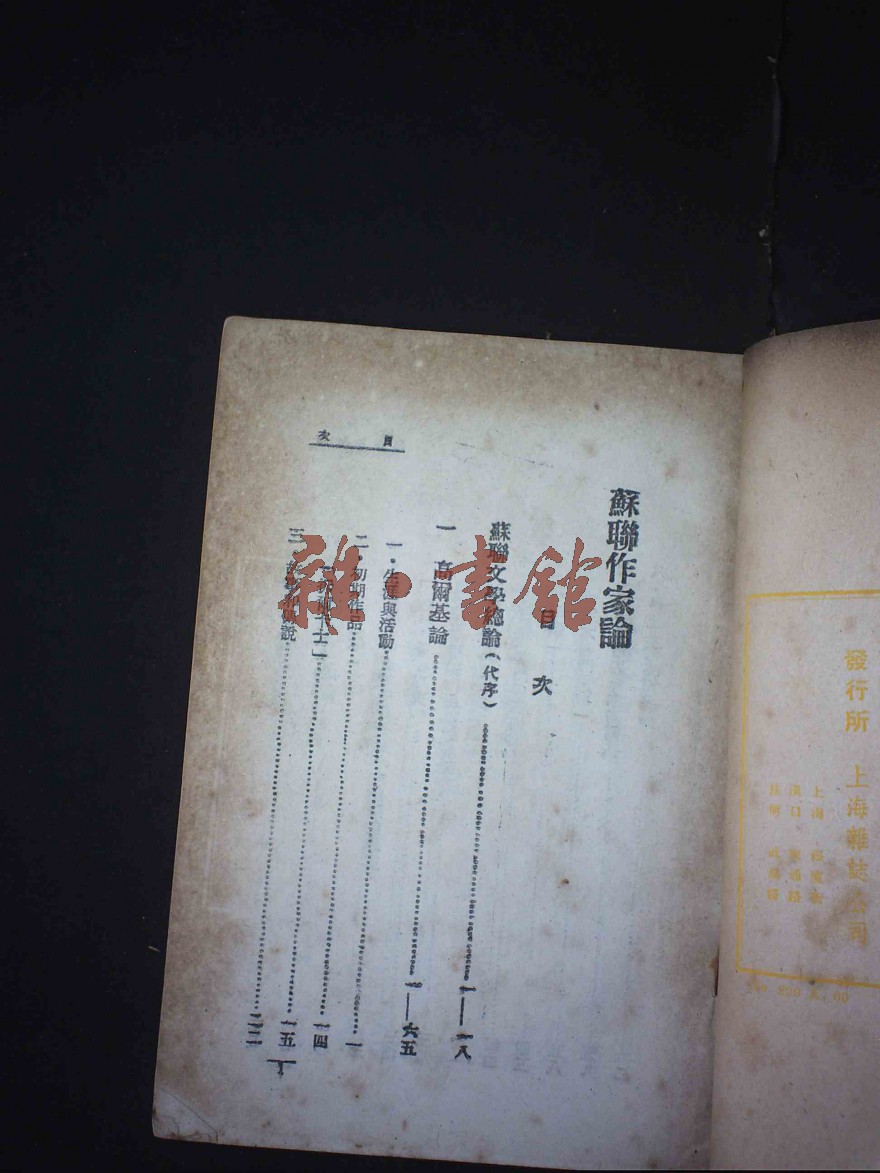 發行所 上海雜誌公司
上海
漢口
蘇聯作家論
目 次
蘇聯文學總論(代序)……一——一八
一 高爾基論……一——六五
一・生涯與活動……一
二・初期作品……一四
十士」……一五
三・傳說……二二
目 次
雜・書館